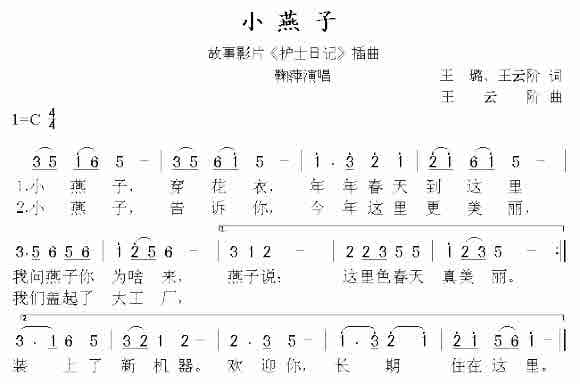 小燕子
故事影片《护士日记》插曲
鞠萍演唱 王璐、王云阶 词
王云阶 曲
1=C 4/4
3 5 1 6 5 - | 3 5 6 1 5 - | 1 . 3 2 1 | 2 1 6 5 - |
1.小 燕 子, 穿 花 衣, 年 年 春 天 到 这 里
2.小 燕 子, 告 诉 你, 今 年 这 里 更 美 丽.
3 . 5 6 5 6 | 1 2 5 6 - | 3 1 2 - | 2 2 3 5 5 | 1 2 3 5 - :||
我问燕子你 为啥 来, 燕子说: 这里色春天 真美 丽。
我们盖起了 大工 厂,
3 . 1 6 5 | 3 2 1 2 - | 2 . 3 5 - | 1 . 3 2 1 | 6 1 2 5 -
装 上 了 新 机 器。 欢 迎 你, 长 期 住在 这 里。